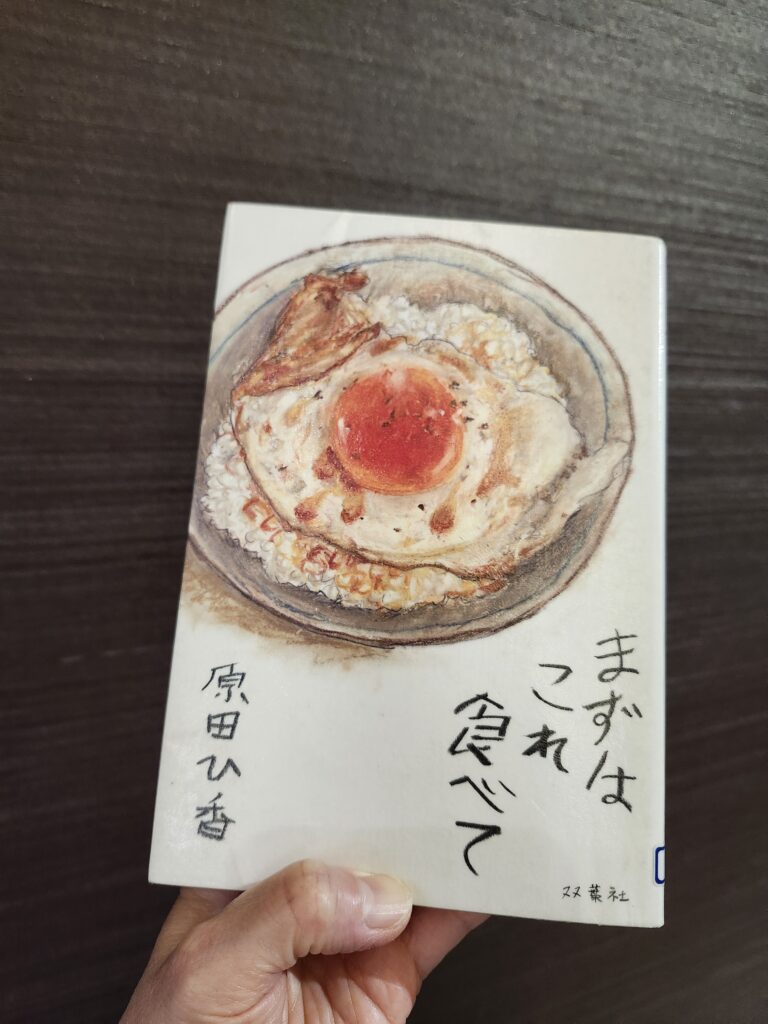 まずは
これ
食べて
原田ひ香
双葉社